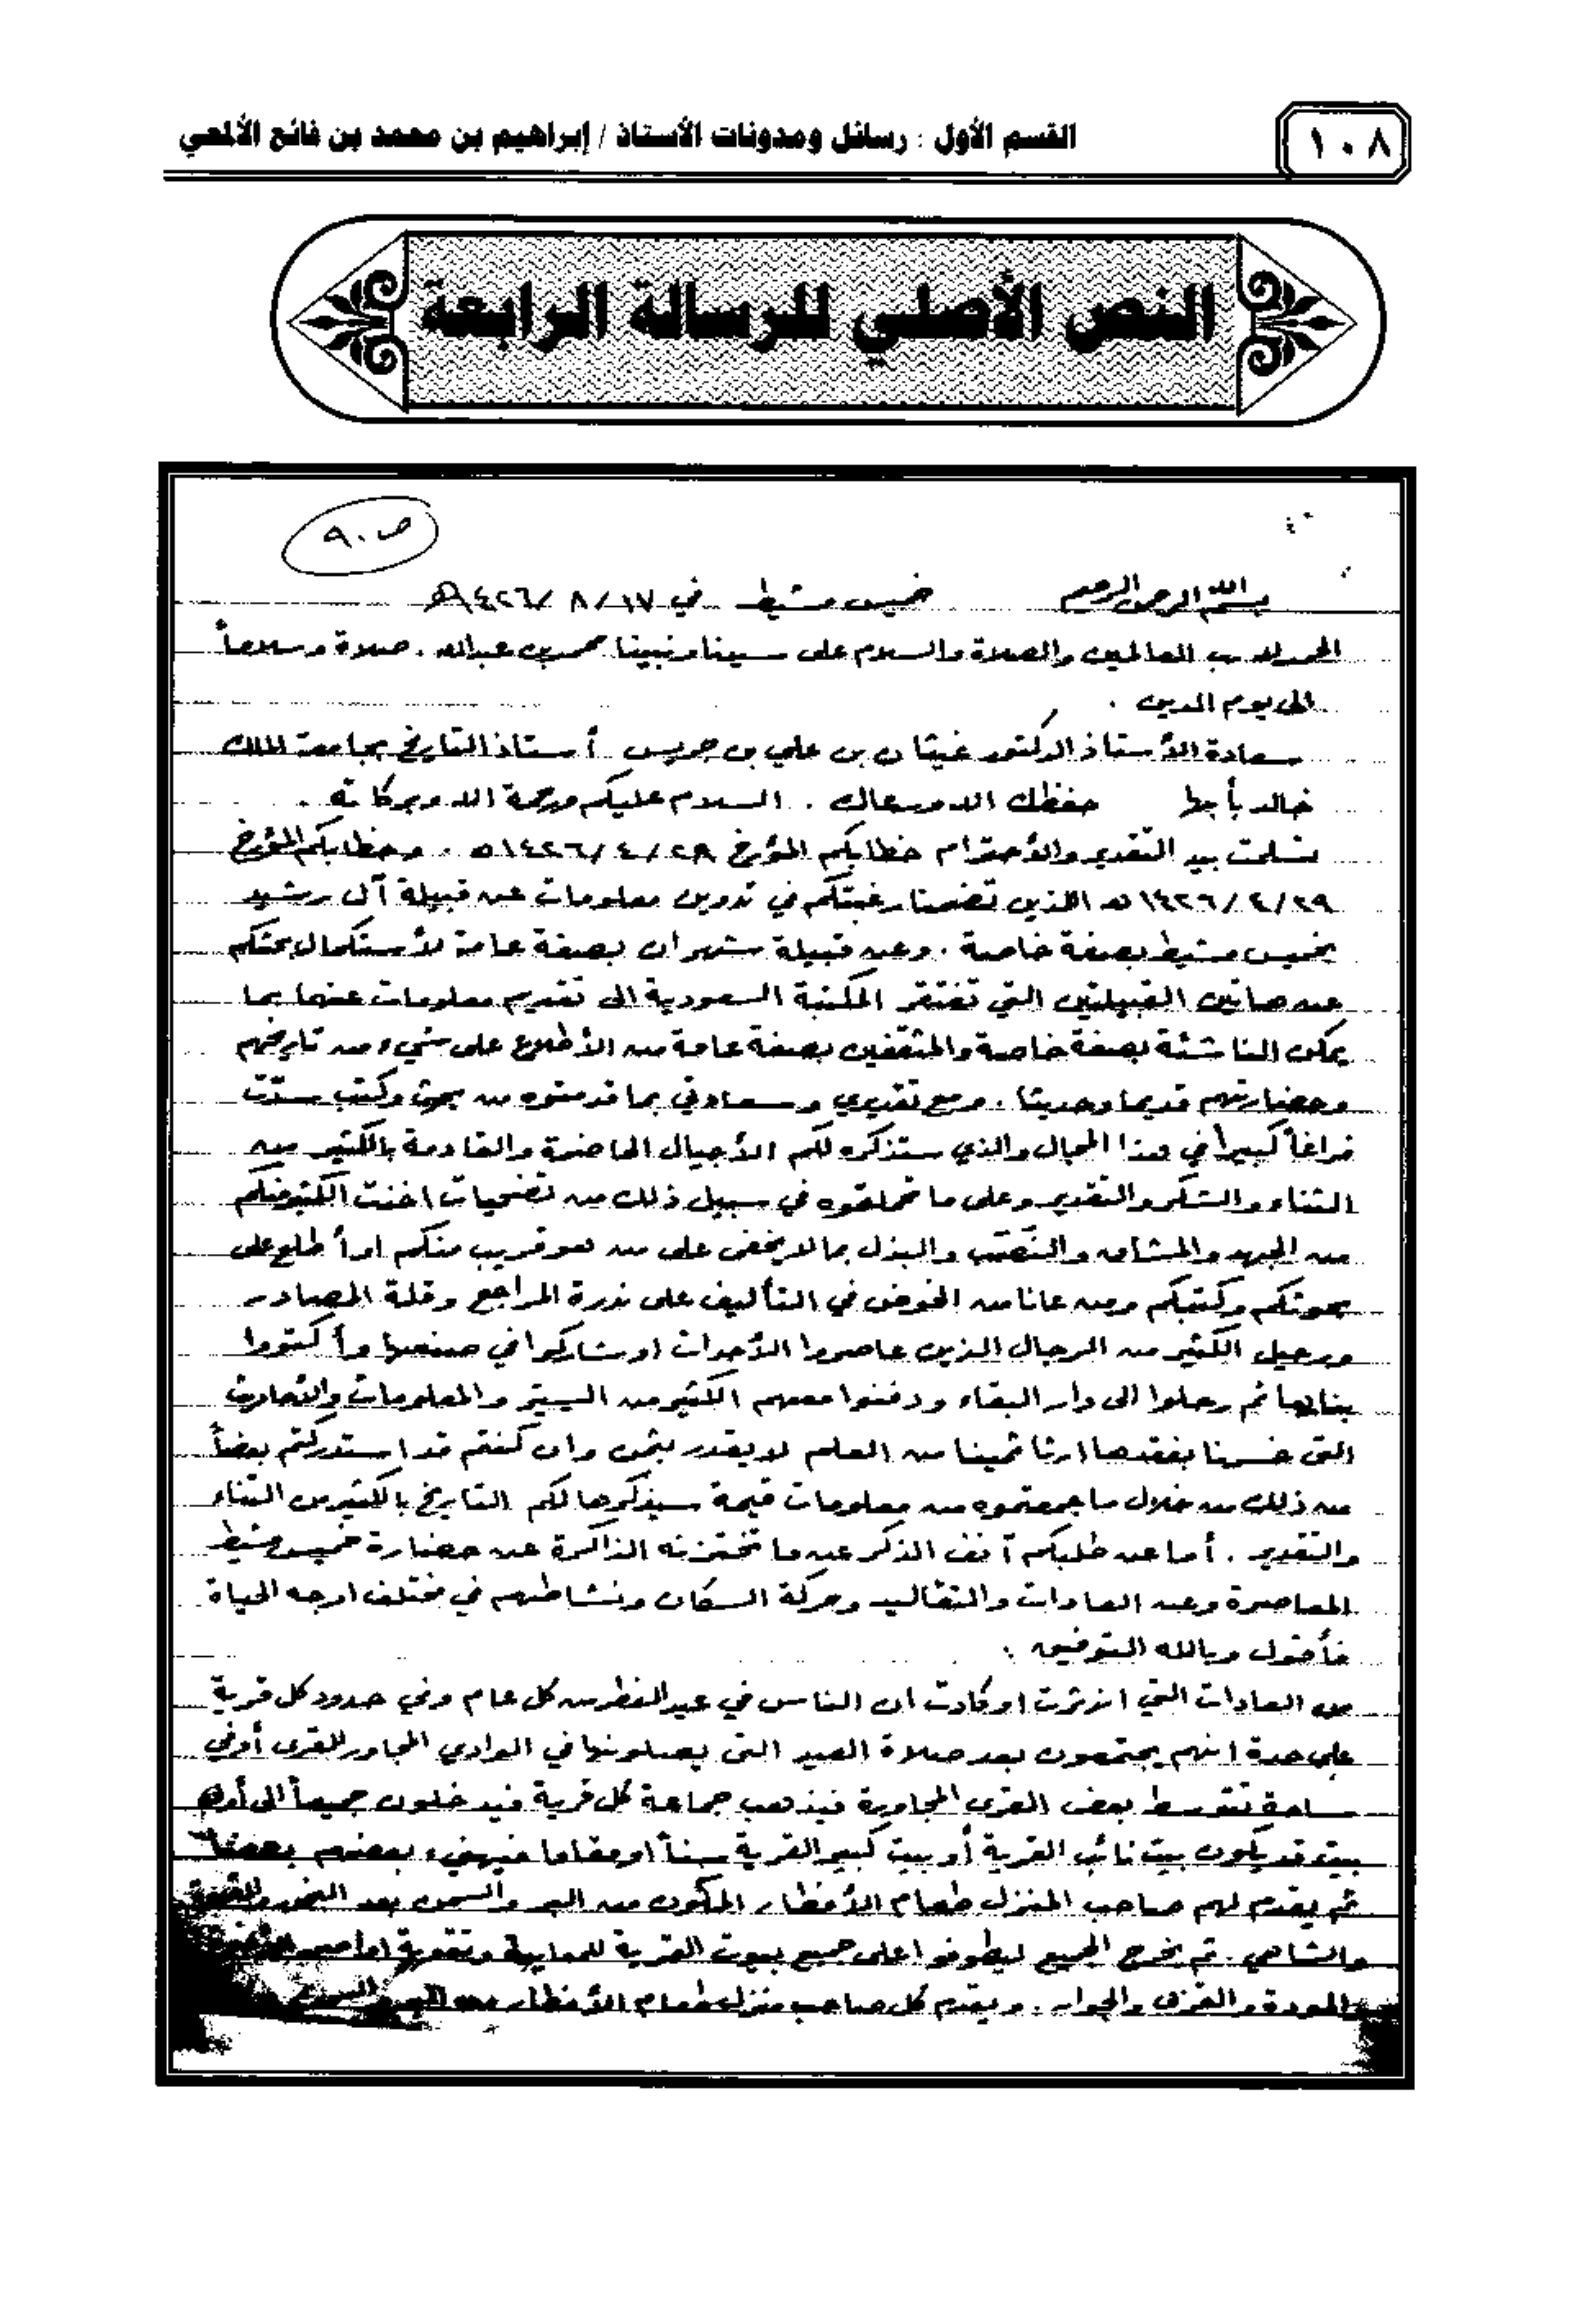 ١٠٨
القسم الأول : رسائل ومدونات الأستاذ / إبراهيم بن محمد بن فائع الألمعي
النص الأصلي للرسالة الرابعة
ص ٩٠
بسم الله الرحمن الرحيم خميس مشيط في ١٧/ ٨ /١٤٢٦هـ
الحمد لله رب العالمين والصلاة والسلام على سيدنا ونبينا محمد بن عبدالله . صلاة وسلاماً
الى يوم الدين .
سعادة الأستاذ الدكتور غيثان بن علي بن جريس أستاذ التاريخ بجامعة الملك
خالد بأبها حفظك الله ورعاك . السلام عليكم ورحمة الله وبركاته .
تسلمت بيد التقدير والأحترام خطابكم المؤرخ ٢٨/ ٤ /١٤٢٦هـ . وخطابكم المؤرخ
٢٩/ ٤ /١٤٢٦هـ اللذين تضمنا رغبتكم في تدوين معلومات عن قبيلة آل رشيد
بخميس مشيط بصفة خاصة . وعن قبيلة شهران بصفة عامة لأستكمال بحثكم
عن هاتين القبيلتين التي تفتقر المكتبة السعودية الى تقديم معلومات عنها بما
يمكن الناشئة بصفة خاصة والمثقفين بصفة عامة من الأطلاع على شيء من تاريخهم
وحضارتهم قديما وحديثا . ومع تقديري وسعادتي بما قدمتوه من بحوث وكتب سدّت
فراغاً كبيراً في هذا المجال والذي ستذكره لكم الأجيال الحاضرة والقادمة بالكثير من
الثناء والشكر والتقدير وعلى ما تحملتوه في سبيل ذلك من تضحيات اخذت الكثير منكم
من الجهد والمشاق والتعب والبذل بما لا يخفى على من هو قريب منكم او أطلع على
بحوثكم وكتبكم ومن عانا من الخوض في التأليف على ندرة المراجع وقلة المصادر
ورحيل الكثير من الرجال الذين عاصروا الأحداث او شاركوا في صنعها وأكتووا
بنارها ثم رحلوا الى دار البقاء ودفنوا معهم الكثير من السير والمعلومات والأحاديث
التي خسرنا بفقدها ارثا ثمينا من العلم لا يقدر بثمن وان كنتم قد استدركتم بعضاً
من ذلك من خلال ما جمعتموه من معلومات قيمة سيذكرها لكم التاريخ بالكثير من الثناء
والتقدير . أما عن طلبكم آنف الذكر عن ما تختزنه الذاكرة عن حضارة خميس مشيط
المعاصرة وعن العادات والتقاليد وحركة السكان ونشاطهم في مختلف اوجه الحياة
فأقول وبالله التوفيق .
من العادات التي اندثرت او كادت ان الناس في عيد الفطر من كل عام وفي حدود كل قرية
على حدة انهم يجتمعون بعد صلاة العيد التي يصلونها في الوادي المجاور للقرى أو في
ساحة تتوسط بعض القرى المجاورة فيذهب جماعة كل قرية فيدخلون جميعاً الى أول
بيت قد يكون بيت نائب القرية أو بيت كبير القرية سناً او مقاما فيهنيء بعضهم بعضاً
ثم يقدم لهم صاحب المنزل طعام الأفطار المكون من البر والسمن بعد التمر والقهوة
والشاهي . ثم يخرج الجميع ليطوفوا على جميع بيوت القرية للمعايدة وتقوية أواصر
المودة والقربى والجوار . ويقدم كل صاحب منزل طعام الأفطار من